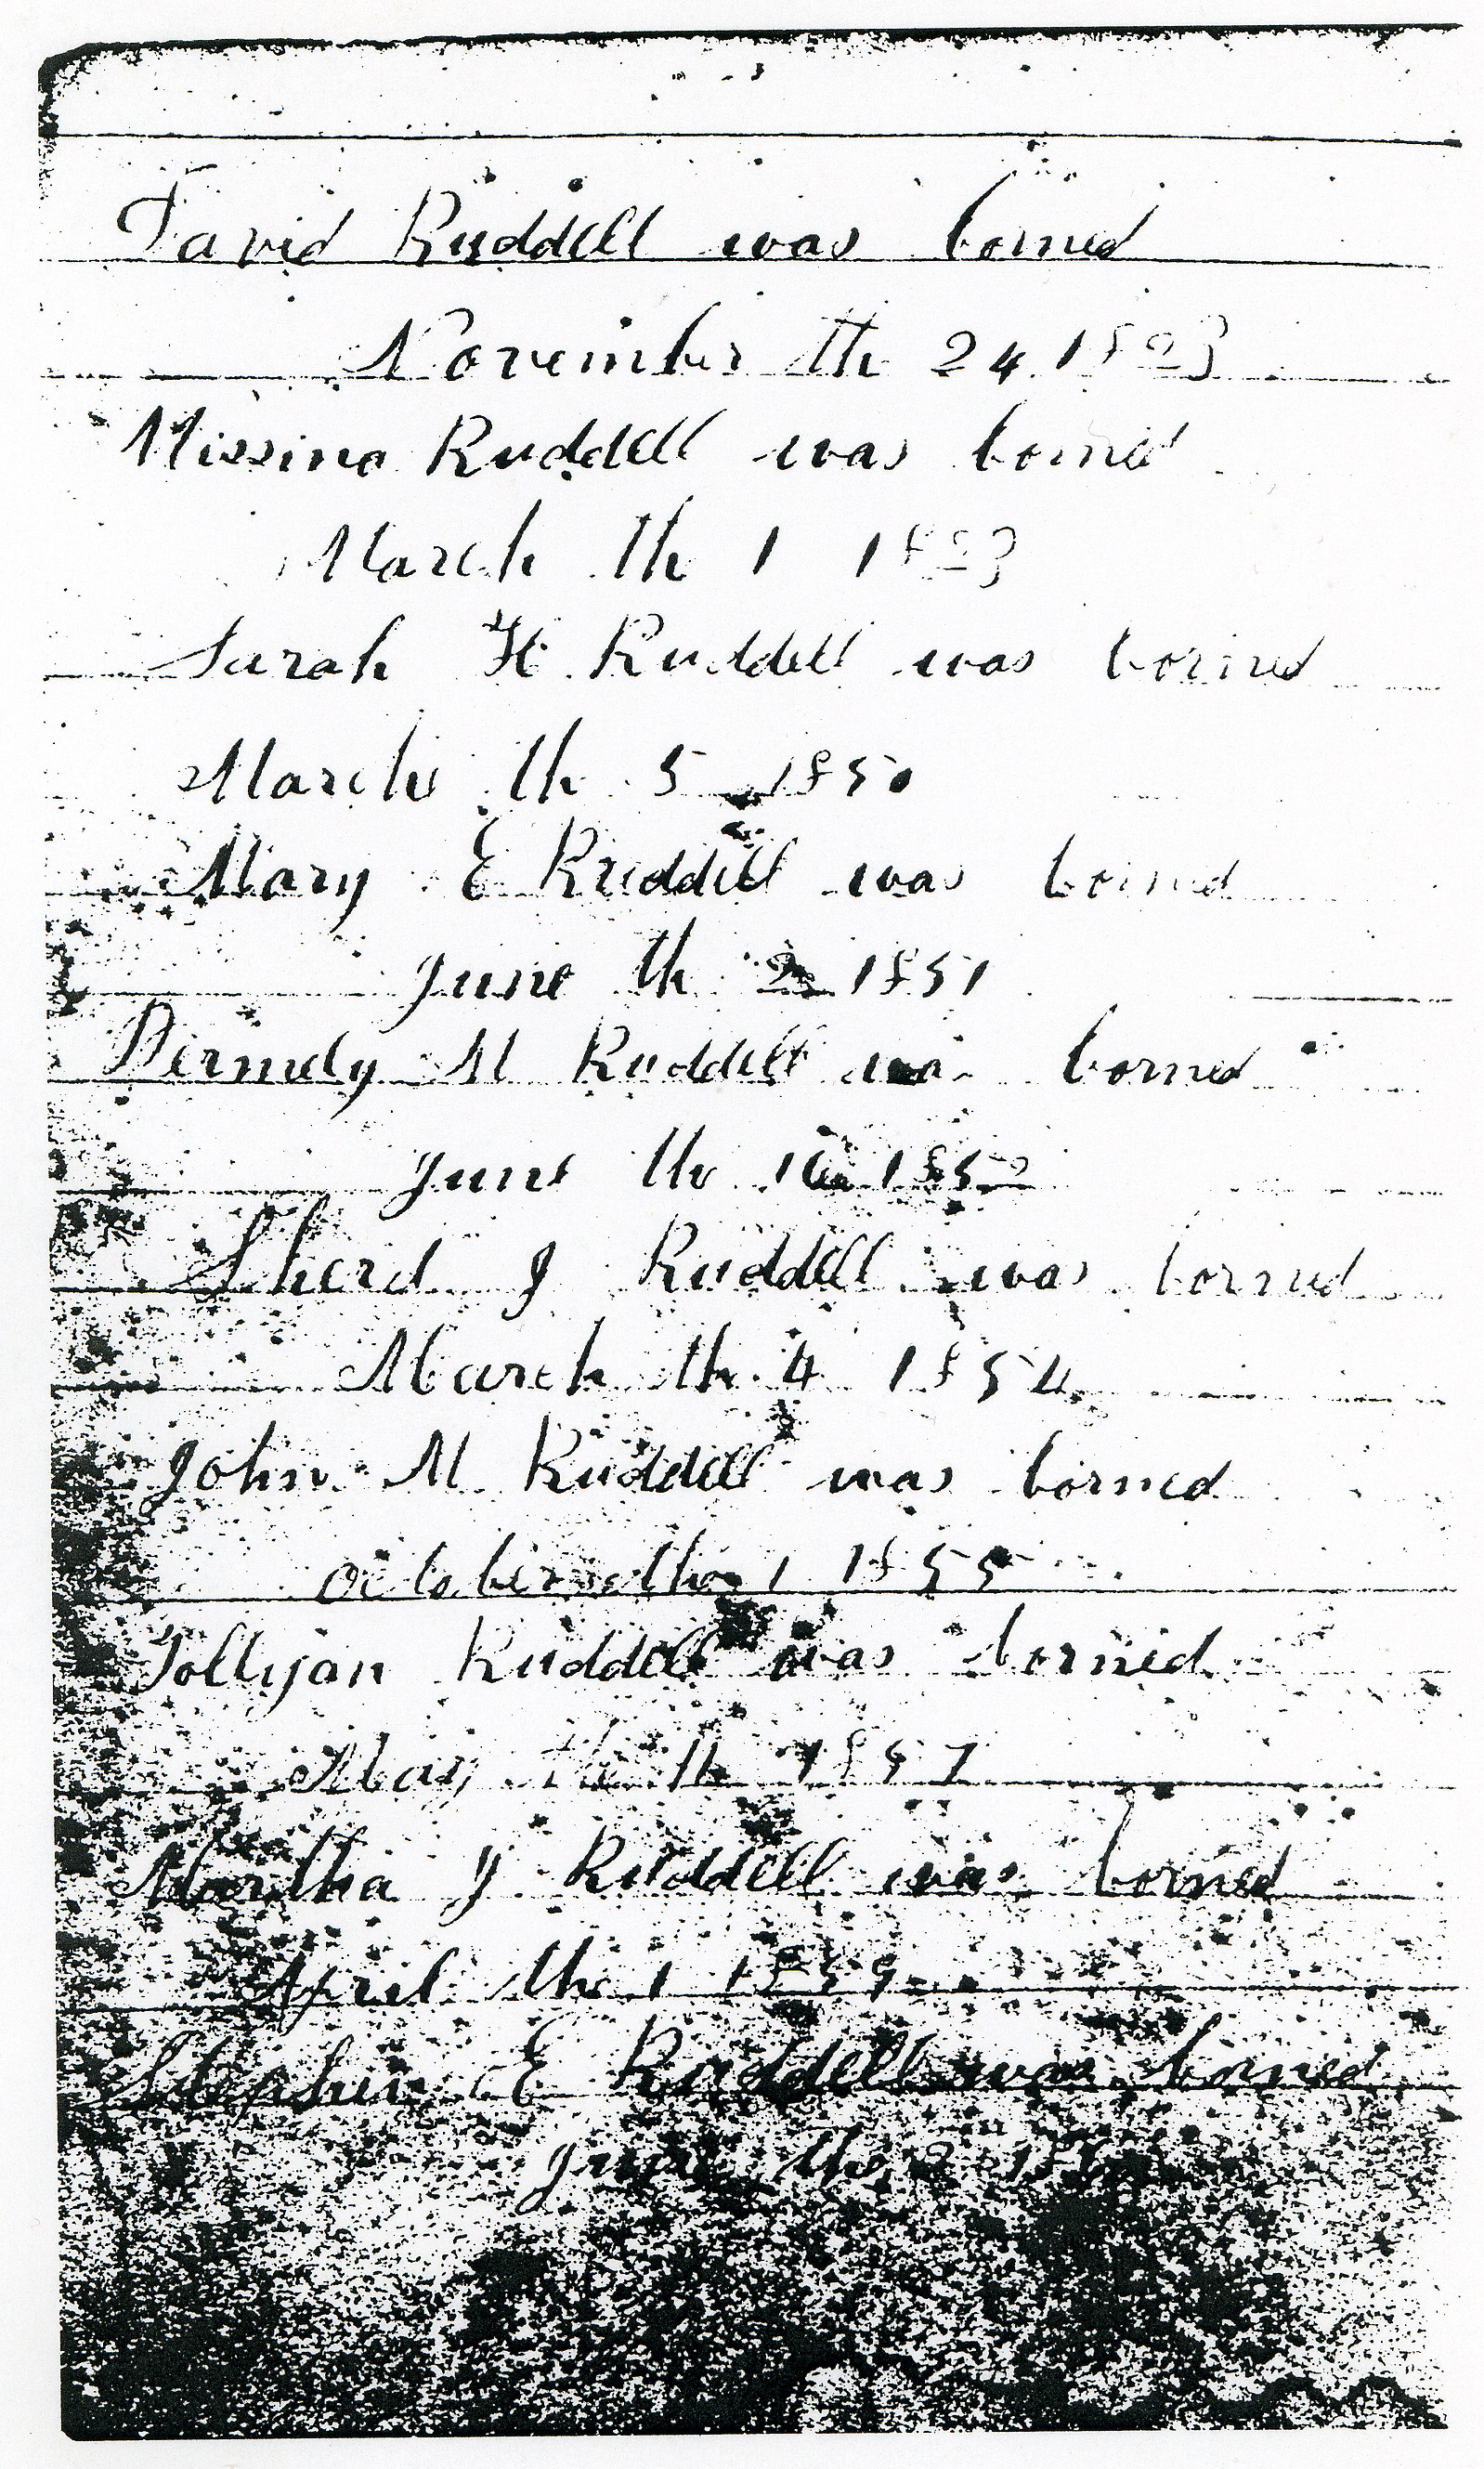 David Ruddell was borned
November th 24 1823
Missina Ruddell was borned
March th 1 1823
Sarah H Ruddell was borned
March th 5 1850
Mary E Ruddell was borned
June th 2 1851
M Ruddell was borned
June th 10 1852
Sherd J Ruddell was borned
March th 4 1854
John M Ruddell was borned
october th 1 1855
Pollyan Ruddell was borned
May th 1857
Martha J Ruddell was borned
April the 1 1859
Stephen E Ruddell was borned
June the